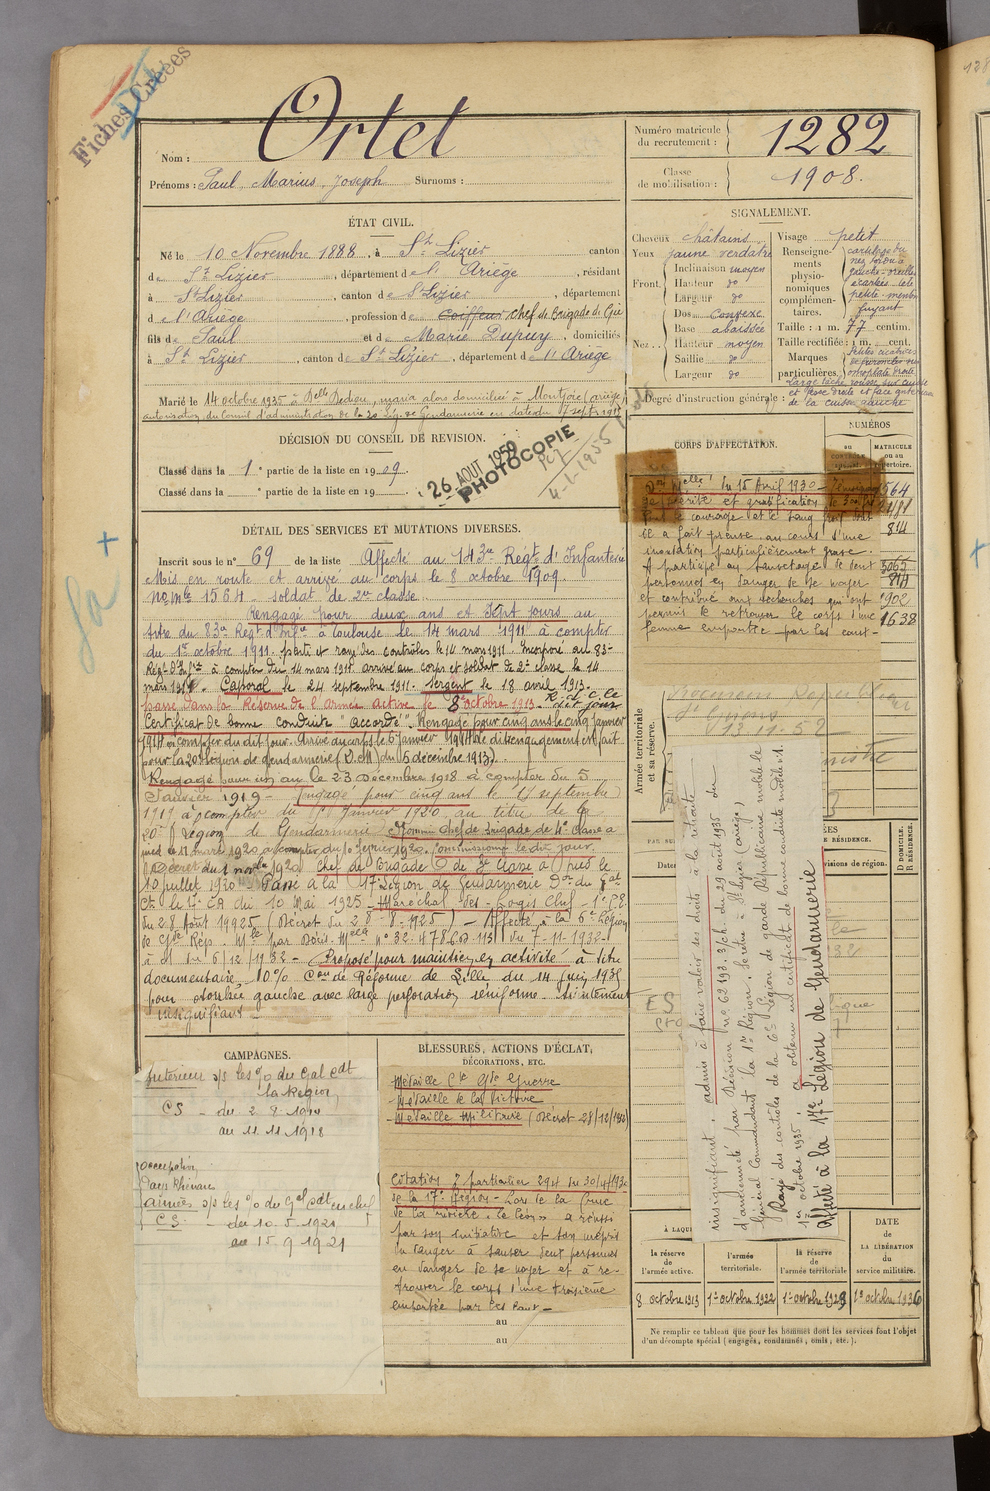 Fiches Créées
Nom : Ortet
Prénoms : Paul Marius Joseph Surnoms :
Numéro matricule
du recrutement : 1282
Classe
de mobilisation : 1908.
ÉTAT CIVIL.
Né le 10 Novembre 1888, à St Lizier canton
de St Lizier, département de l' Ariège, résidant
à St Lizier, canton de St Lizier, département
d e l'Ariège, profession de Coiffeur chef de Brigade de Gie
fils de Paul et de Marie Dupuy, domiciliés
à St Lizier, canton de St Lizier, département de l'Ariège
Marié le 14 octobre 1935 à Delle Dedieu, maria alors domiciliée à Montjoie (ariège)
autorisation du Conseil d'administration de la 20 Lég. de Gendarmerie en date du 17 sept. 19
SIGNALEMENT.
Cheveux châtains
Yeux jaune verdatre
Front. Inclinaison moyen
Hauteur do
Largeur do
Nez. Dos Convexe
Base abaissée
Hauteur moyen
Saillie do
Largeur do
Visage petit
Renseignements
physionomiques
complémentaires.
cartilage du
nez tordu à
gauche - oreilles
écartées tête
petite - menton
fuyant
Taille : 1 m. 77 centim.
Taille rectifiée : 1 m. cent.
Marques
particulières.
Petites cicatrices
de furoncles sur
omoplate droite
large tâche rousse sur
et fesse droite et face
de la cuisse gauche
Degré d'instruction générale :
DÉCISION DU CONSEIL DE REVISION.
Classé dans la 1e partie de la liste en 1909.
Classé dans la e partie de la liste en 19
26 AOUT 1950
PHOTOCOPIE
4-1-1955
DÉTAIL DES SERVICES ET MUTATIONS DIVERSES.
Inscrit sous le no 69 de la liste Affecté au 143me Regt d'Infanterie
Mis en route et arrivé au corps le 8 octobre 1909.
no mle 1564. soldat de 2me classe.
Rengagé pour deux ans et sept jours au
titre du 83me Regt d'Infie à Toulouse le 14 mars 1911 à compter
du 1er octobre 1911. parti et rayé des contrôles le 14 mars 1911. Incorporé au 83e
Régt d'Infie à compter du 14 mars 1911 arrivé au corps et soldat de 2e classe le 14
mars 1911. Caporal le 24 septembre 1911. Sergent le 18 avril 1913.
passé dans la Réserve de l'armée active le 8 octobre 1913. R. d. c. le
dit jour
Certificat de bonne conduite "accordé". Rengagé pour cinq ans le cinq janvier
1914 à compter du dit jour. Arrivé au corps le 6 janvier 1914 (le dit rengagement en fait
pour la 20e légion de gendarmerie) (D.M. du 5 décembre 1913).
Rengagé pour un an le 23 Décembre 1918 à compter du 5
Janvier 1919 - Engagé pour cinq ans le 11 septembre
1919 à compter du Janvier 1920 au titre de la
20e Légion de Gendarmerie Nommé chef de brigade de 4e classe à
pied le 12 mars 1920 à compter du 1er février 1920. commissionné le dit jour.
1920 Chef de Brigade de 3e Classe à pied le
10 juillet 1920. Passé à la 17e Légion de Gendarmerie
du 10 Mai 1925 - Maréchal des Logis Chef
du 28 Août 1925 (Décret du 28-8-1925) - Affecté à la 6e Légion
de Gde Rép. Mle par Décis. Melle no 32.478 du 7-11-1932
à du 6/12/1932 - Proposé pour maintien en activité à titre
documentaire, 10% Con de Réforme de Lille du 14 juin 1935
pour otorrhée gauche avec large perforation réniforme. Suintement
insignifiant -
CORPS D'AFFECTATION.
NUMÉROS
au
CONTRÔLE
spécial.
MATRICULE
ou au
répertoire.
du 15 Avril 1930 - Témoignage
de mérite et gratification de 300 frs
pour le courage et le sang froid dont
il a fait preuve au cours d'une
inondation particulièrement grave.
A participé au sauvetage de deux
personnes en danger de se noyer
et contribué aux recherches qui ont
permis de retrouver le corps d'une
femme emportée par les eaux -
564
2481
814
5065
814
902
1638
Armée territoriale
et sa réserve.
St Girons
13.11.52
insignifiant, admis à faire valoir ses droits à la retraite
d'ancienneté par Décision no 62193. 3/ch. du 29 août 1935 du
Général Commandant la 1re Région. Se retire à St Lizier (ariège)
Rayé des contrôles de la 6e Légion de garde Républicaine mobile le
1er octobre 1935, a obtenu un certificat de bonne conduite modèle no 1.
affecté à la 17e Légion de Gendarmerie
RÉSIDENCE.
Dates
visions de région.
D DOMICILE.
R RÉSIDENCE.
CAMPAGNES.
Intérieur s/s les % du Gal Cdt
la Région
CS - du 2.8.1914
au 11.11.1918
Occupation
Pays Rhénans
armée s/s les % du Gal Cdt en chef
CS. - du 10.5.1921
au 15.9.1921
BLESSURES, ACTIONS D'ÉCLAT,
DÉCORATIONS, ETC.
Médaille Cve Gde Guerre
Médaille de la Victoire
Médaille Militaire (Décret 28/12/1930)
Citation à particulier 294 du 30/4/1930
de la 17e Légion - Lors de la crue
de la rivière, le Lèze a réussi
par son initiative et son mépris
du danger à sauver deux personnes
en danger de se noyer et à re-
trouver le corps d'une troisième
emportée par les eaux -
au
au
la réserve
de
l'armée active.
l'armée
territoriale.
la réserve
de
l'armée territoriale
DATE
de
LA LIBÉRATION
du
service militaire.
8 octobre 1913
1er octobre 1922
1er octobre 1928
1er octobre 1936
Ne remplir ce tableau que pour les hommes dont les services font l'objet
d'un décompte spécial (engagés, condamnés, omis, etc.).